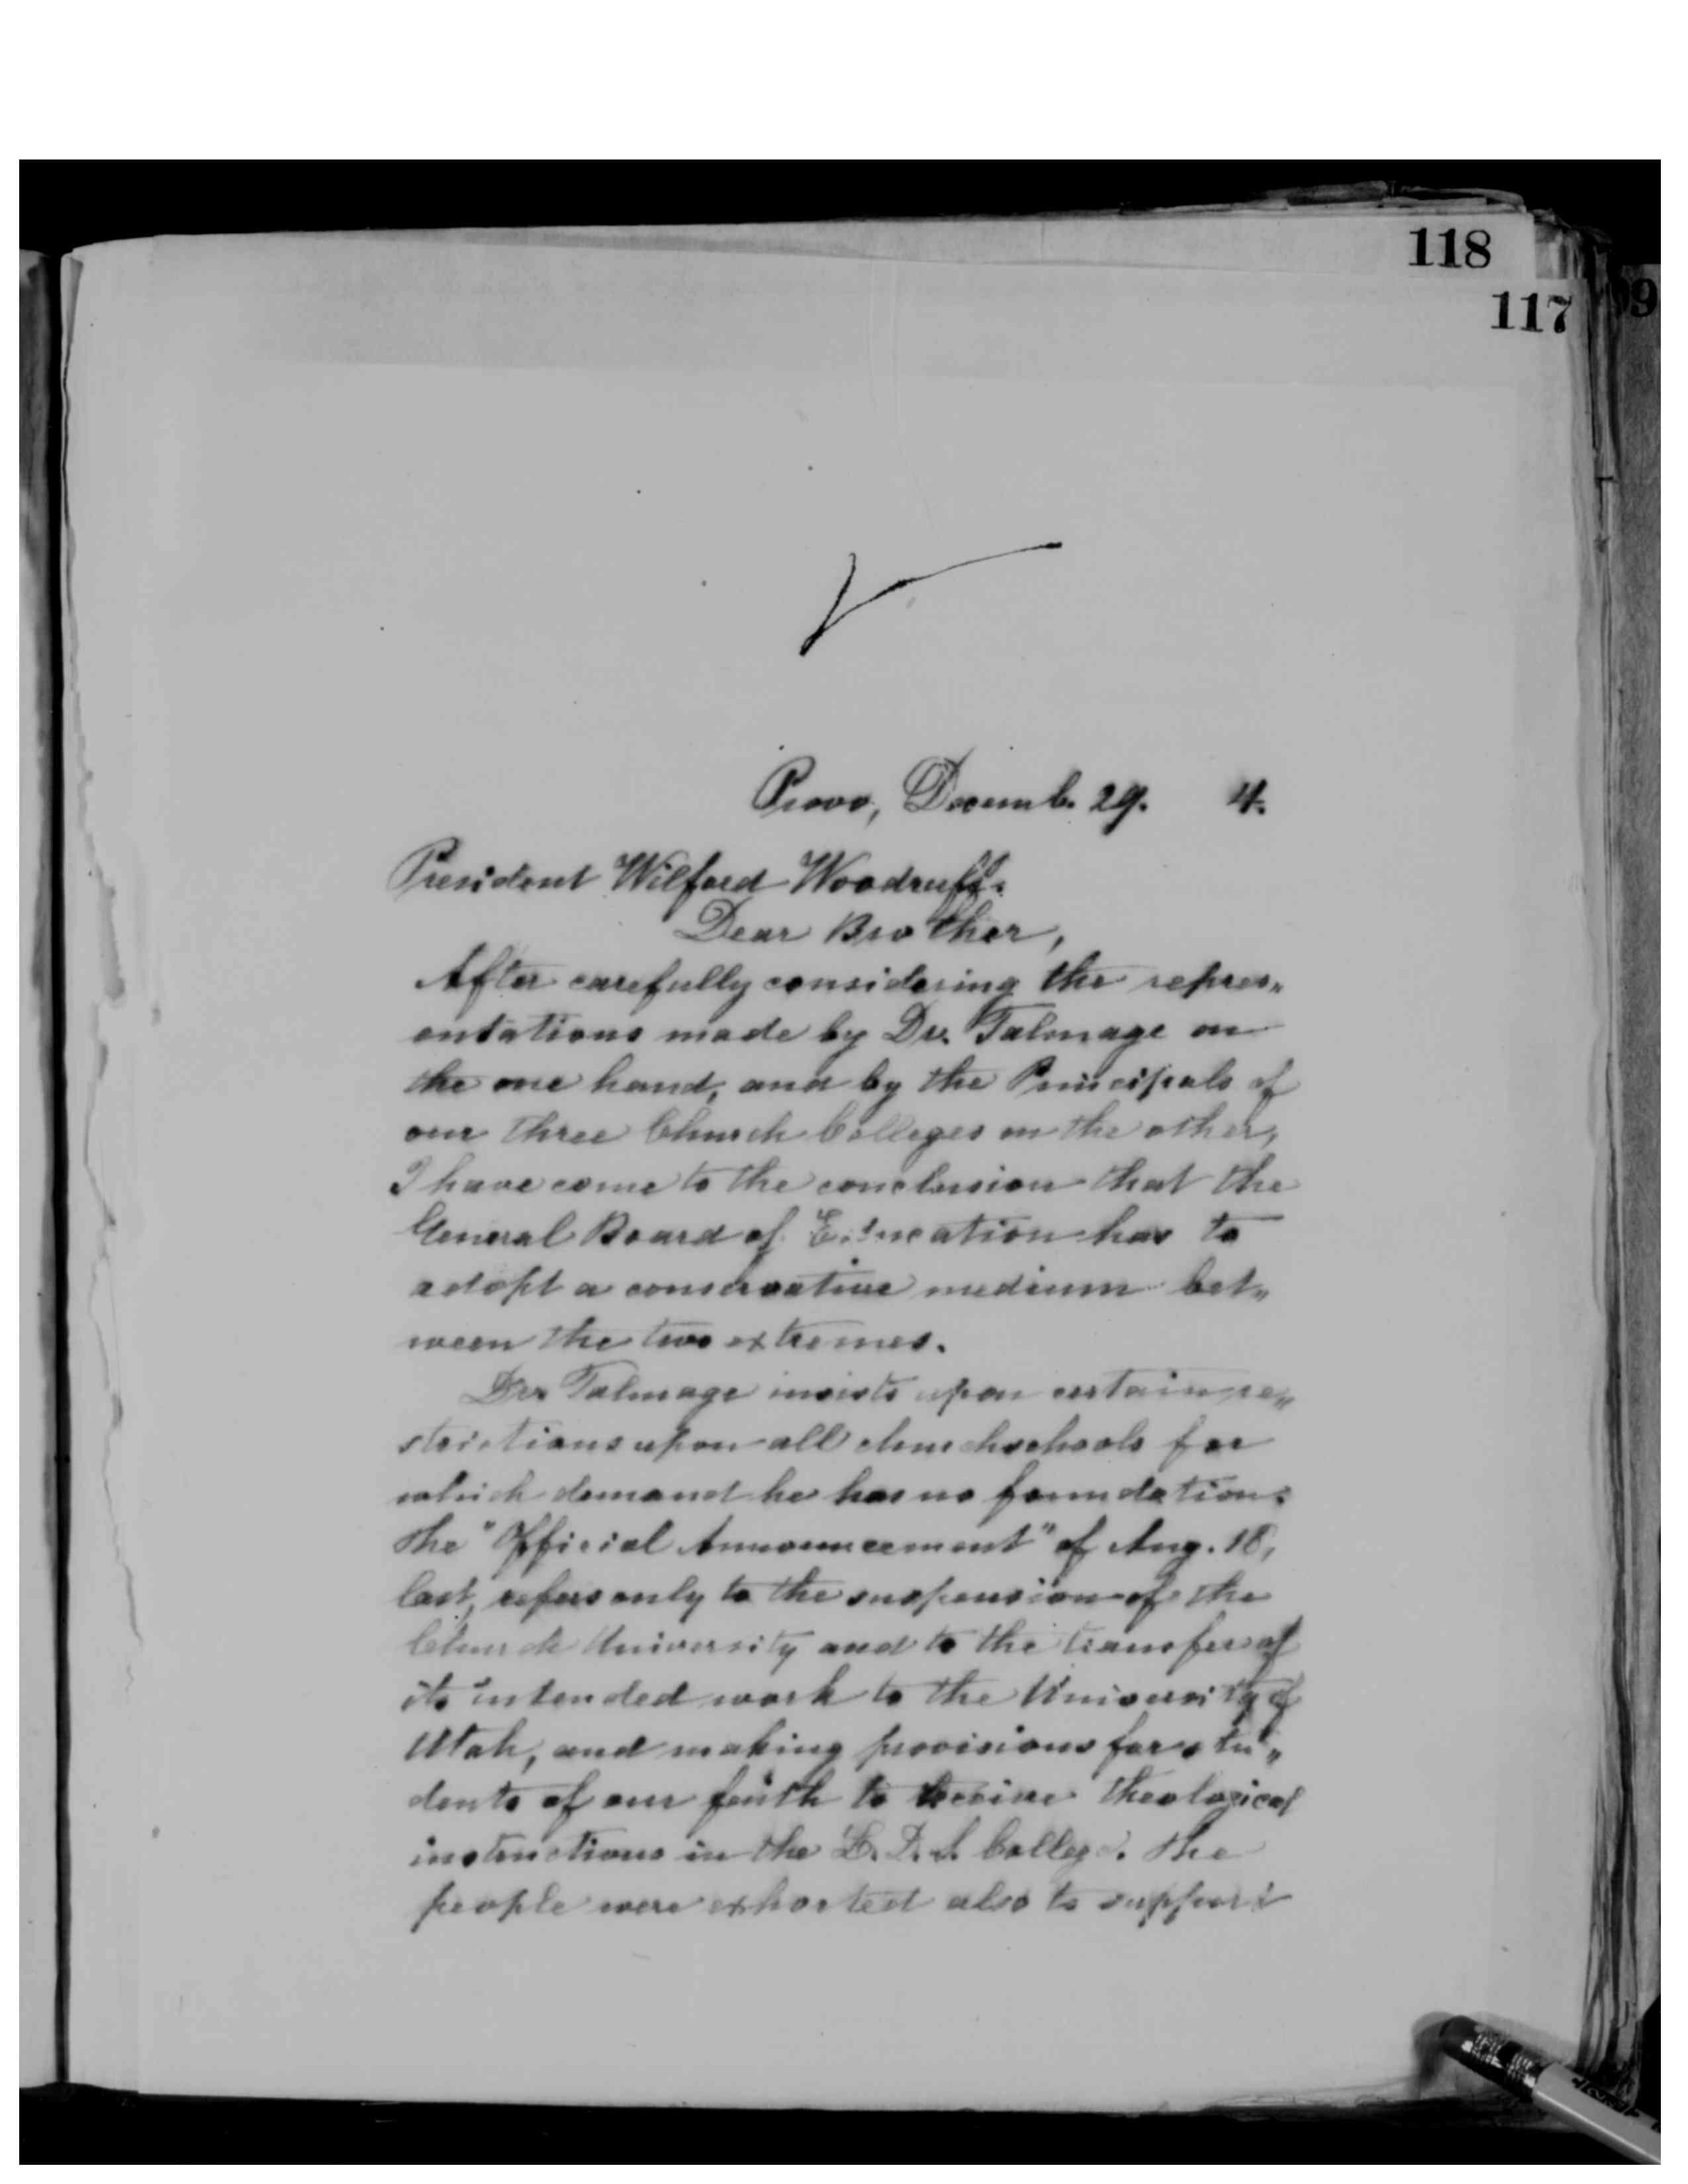 118
117
Provo, Decemb. 29. 4.
President Wilford Woodruff.
Dear Brother,
After carefully considering the repres„
entations made by Dr. Talmage on
the one hand, and by the Principals of
our three Church Colleges on the other,
I have come to the conclusion that the
General Board of Education has to
adopt a conservative medium bet„
ween the two extremes.
Dr. Talmage insists upon certain re„
strictions upon all churchschools for
which demand he has no foundation.
The "Official Announcement" of Aug. 18,
last, refers only to the suspension of the
Church University and to the transfer of
its intended work to the University of
Utah, and making provisions for stu„
dents of our faith to receive theological
instructions in the L. D. S. College. The
people were exhorted also to support